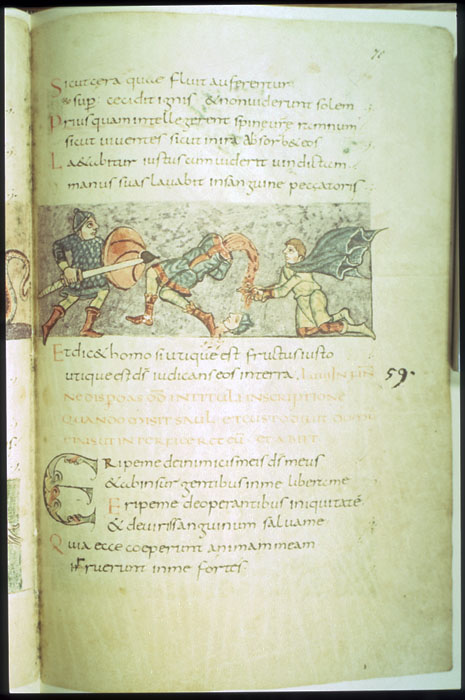 70
Sicut cera quae fluit auferentur
& sup̄ cecidit ignis & non uiderunt solem
Prius quam intellegerent spine ur̄e ramnum
sicut uiuentes sicut in ira absorb& eos
La&abitur iustus cum uiderit uindictam
manus suas lauabit in sanguine peccatoris
Et dic& homo si utique est fructus iusto
utique est d̄s iudicans eos in terra IN FIN
59.
IN TITULI INSCRIPTIONE
QUANDO MISIT SAUL ET CUSTODIUIT DOMU
Eripe me de inimicis meis d̄s meus
& ab insur gentibus in me libera me
Eripe me de operantibus iniquitatē
& de uiris sanguinum salua me
Quia ecce coeperunt animam meam
fortes